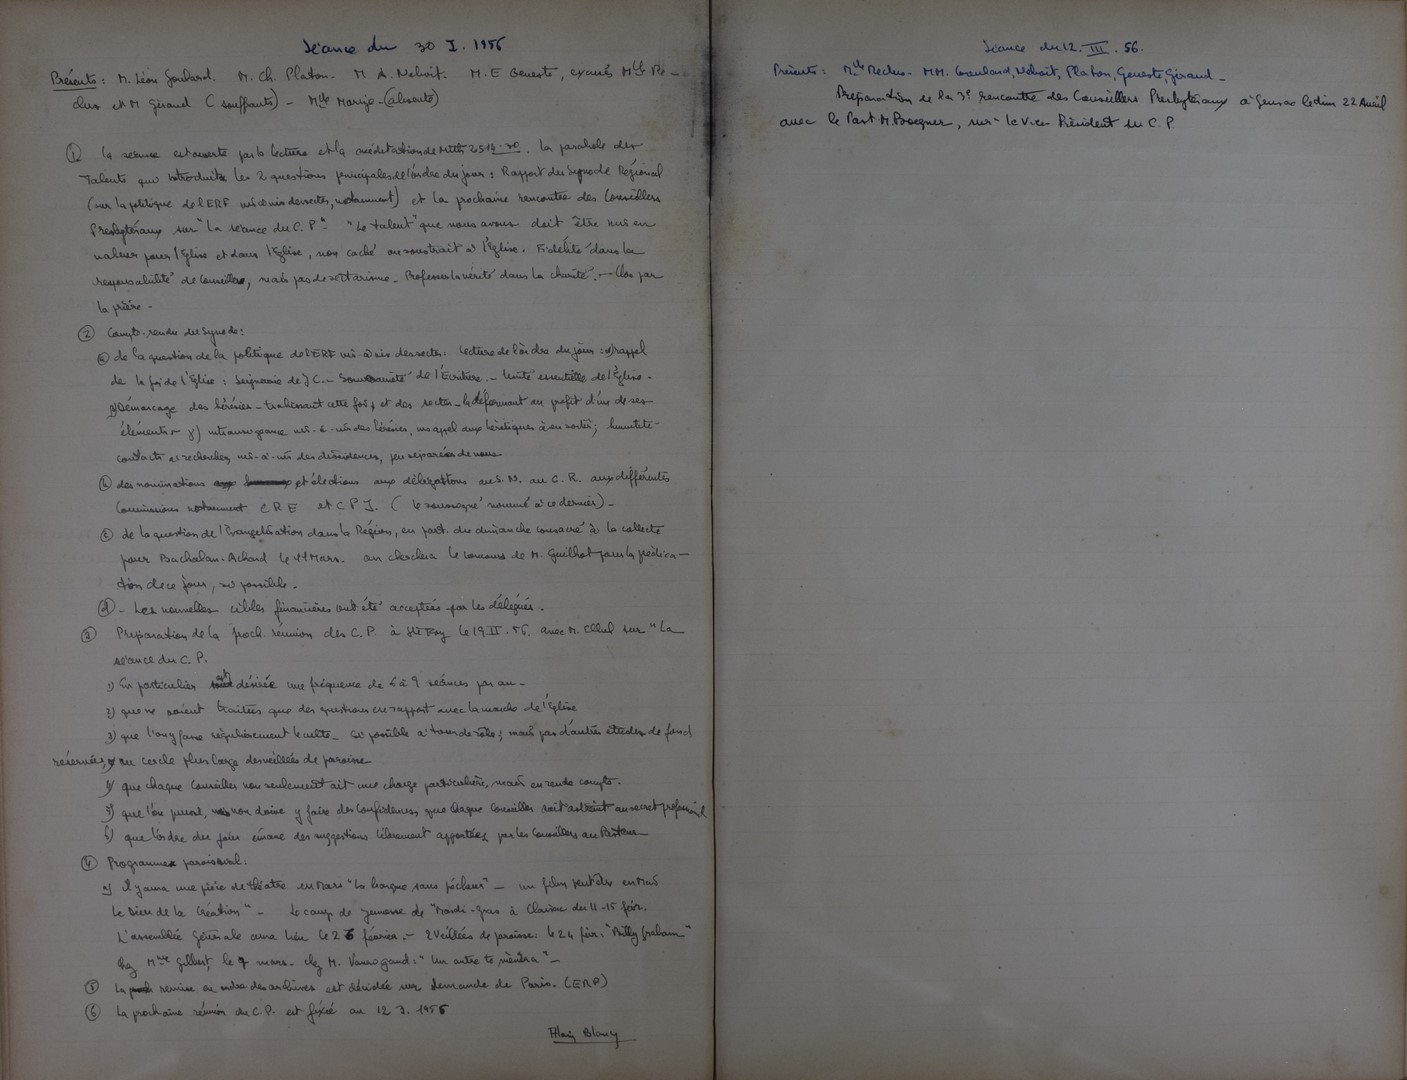 Séance du 30 I. 1956
Présents: M. Léon Goulard. M. Ch. Platon. M A. Nehoit. M. E Geneste, excusés Mlle Re-
clus et M Giraud (souffants) - Mlle (absente)
① la séance est ouverte par la lecture et la méditation de Matth 25 14-30. la parabole des
Talents qui introduit les 2 questions principales de l'ordre du jour: Rapport du Synode Régional
(sur la politique de l'ERF vis à vis des sectes, notamment) et la prochaine rencontre des Conseillers
Presbytéraux sur "la séance du C.P" - "Le talent" que nous avons doit être mis en
valeur pour l'Eglise et dans l'Eglise, non caché ou soustrait à l'Eglise. Fidélité dans la
responsabilité de Conseiller, mais pas de sectarisme - Professer la vérité dans la charité. - Clos par
la prière -
② Compte-rendu du Synode:
ⓐ de la question de la politique de l'ERF vis-à-vis des sectes: lecture de l'ordre du jour: α) rappel
de la foi de l'Eglise: Seigneurie de J C. - Souveraineté de l'Ecriture. - Unité essentielle de l'Eglise -
β) Démarcage des hérésies - trahissant cette foi, et des sectes - la déformant au profit d'un de ses
éléments - γ) intransigeance vis-à-vis des hérésies, appel aux hérétiques à en sortir; humilité -
contacts et recherches, vis-à-vis des dissidences, peu séparées de nous
ⓑ des nominations et élections aux délégations au S. N. au C. R. aux différentes
Commissions notamment C R E et C P J. (le soussigné nommé à ce dernier) -
ⓒ de la question de l'Evangélisation dans la Région, en part. du dimanche consacré à la collecte
pour Bacalan-Achard le 11 Mars. on cherchera le concours de M. Guilhot pour la prédica-
tion de ce jour, si possible -
ⓓ - Les nouvelles cibles financières ont été acceptées par les délégués.
③ Préparation de la proch. réunion des C. P. à Ste Foy le 19 II. 56. avec M. Ellul sur "La
séance du C. P.
1) En particulier est désirée une fréquence de 6 à 9 séances par an -
2) que ne soient traitées que des questions en rapport avec la marche de l'Eglise
3) que l'on y fasse régulièrement le culte - si possible à tour de rôle; mais pas d'autres études de fond
réservées au cercle plus large des veillées de paroisse
4) que chaque Conseiller non seulement ait une charge particulière, mais en rende compte -
5) que l'on puisse, non doive y faire des confidences, que chaque Conseiller soit astreint au secret professionnel
6) que l'ordre du jour émane des suggestions librement apportées par les Conseillers au Pasteur -
④ Programme paroissial:
Il y aura une pièce de théâtre en Mars "La barque sans pêcheur" - un film peut être en Mai
Le Dieu de la Création" - Le camp de jeunesse de "Mardi-gras à Clairac du 11-15 févr.
L'assemblée générale aura lieu le 26 février. - 2 Veillées de paroisse: le 24 fév: "Billy Graham"
chez Mme Gilbert, le 7 mars - chez M. "Un autre te mènera" -
⑤ La remise en ordre des archives est décidée sur demande de Paris. (ERF)
⑥ La prochaine réunion du C.P. est fixée au 12 3. 1956
Alain Blancy
Séance du 12. III. 56.
Présents: Mlle Reclus. MM. Goulard, Nehoit, Platon, Geneste, Giraud -
Préparation de la 3e rencontre des Conseillers Presbytéraux à Gensac le dim 22 Avril
avec le Past M. Boegner, sur - le Vice-Président du C. P.